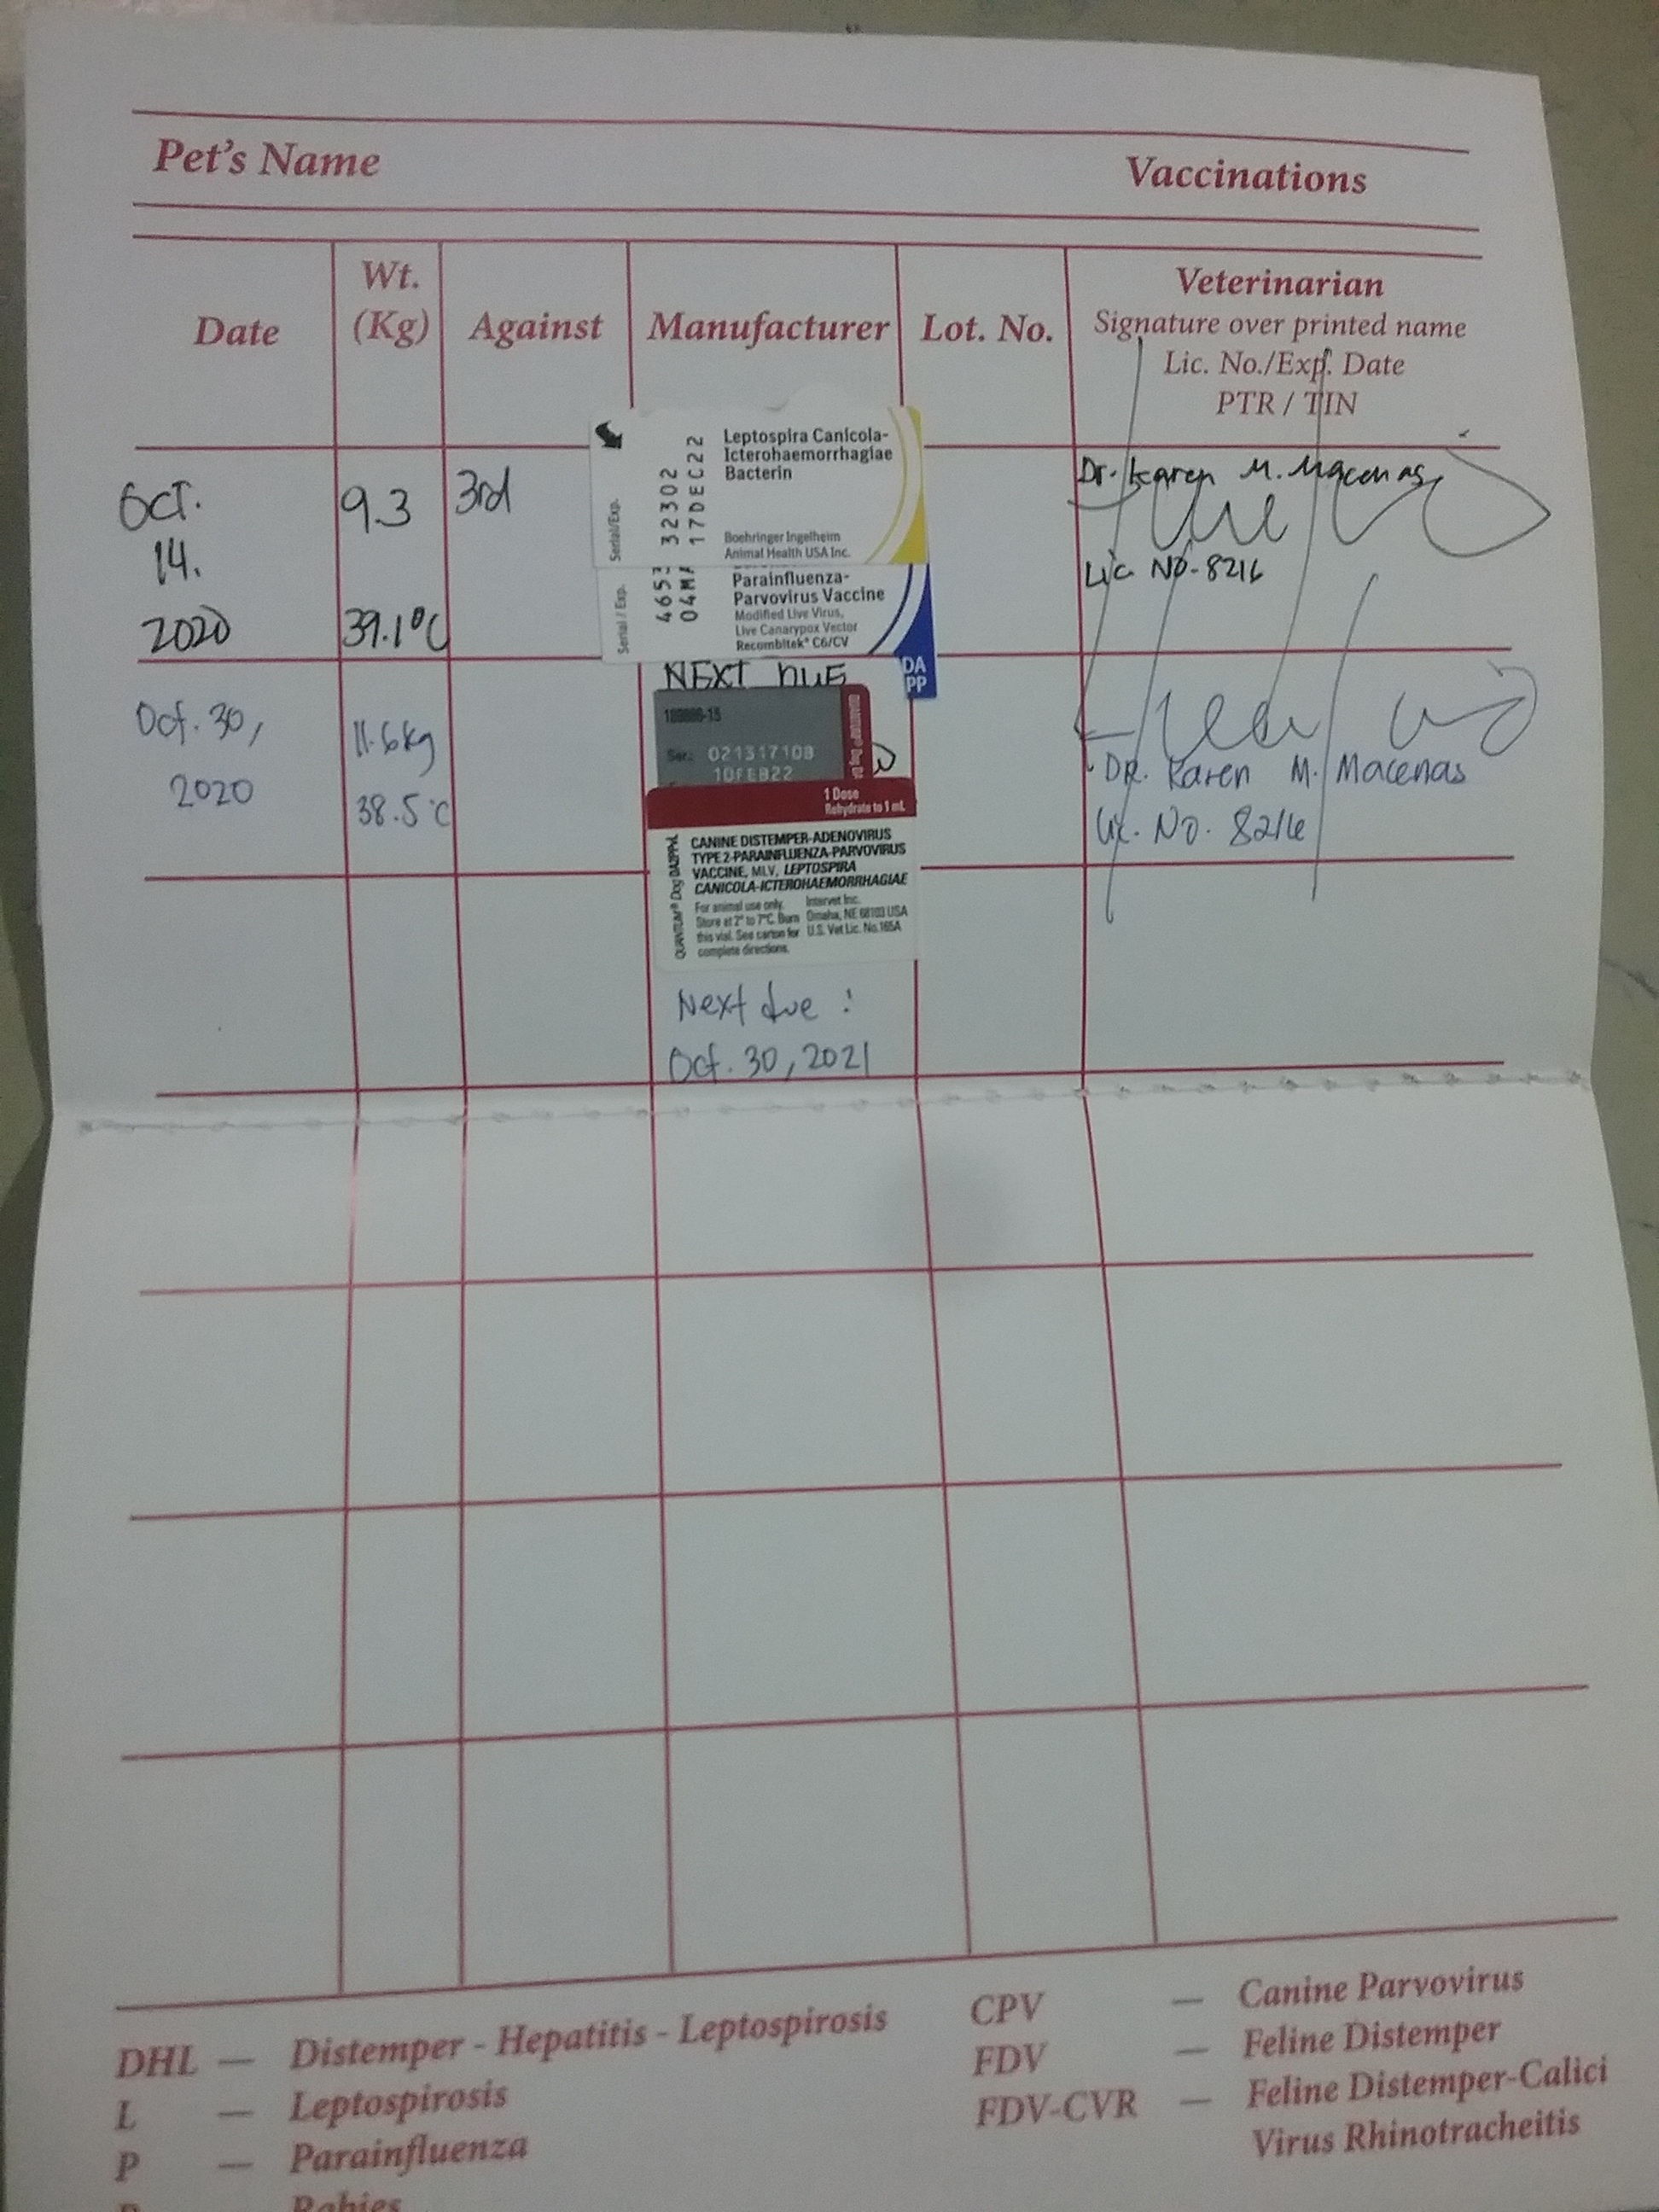 Pet's Name
Vaccinations
Date
Wt.
(Kg)
Against
Manufacturer
Lot. No.
Veterinarian
Signature over printed name
Lic. No./Exp. Date
PTR / TIN
Oct.
14.
2020
9.3
39.1°C
3rd
Serial/Exp.
32302
17DEC22
Leptospira Canicola-
Icterohaemorrhagiae
Bacterin
Boehringer Ingelheim
Animal Health USA Inc.
Serial / Exp.
Parainfluenza-
Parvovirus Vaccine
Modified Live Virus,
Live Canarypox Vector
Recombitek® C6/CV
DA
PP
Dr. Karen M. Macenas
Lic NO-8216
NEXT DUE
Oct. 30,
2020
11.6kg
38.5°C
Ser.: 021317109
10FEB22
1 Dose
Rehydrate to 1 mL
QUANTUM® Dog DA2PPvL
CANINE DISTEMPER-ADENOVIRUS
TYPE 2-PARAINFLUENZA-PARVOVIRUS
VACCINE, MLV, LEPTOSPIRA
CANICOLA-ICTEROHAEMORRHAGIAE
For animal use only.
Store at 2° to 7°C. Burn
this vial. See carton for
complete directions.
Intervet Inc.
Omaha, NE 68103 USA
U.S. Vet Lic. No. 165A
DR. Karen M. Macenas
Lic. No. 8216
Next due :
Oct. 30, 2021
DHL — Distemper - Hepatitis - Leptospirosis
L — Leptospirosis
P — Parainfluenza
Rabies
CPV — Canine Parvovirus
FDV — Feline Distemper
FDV-CVR — Feline Distemper-Calici
Virus Rhinotracheitis